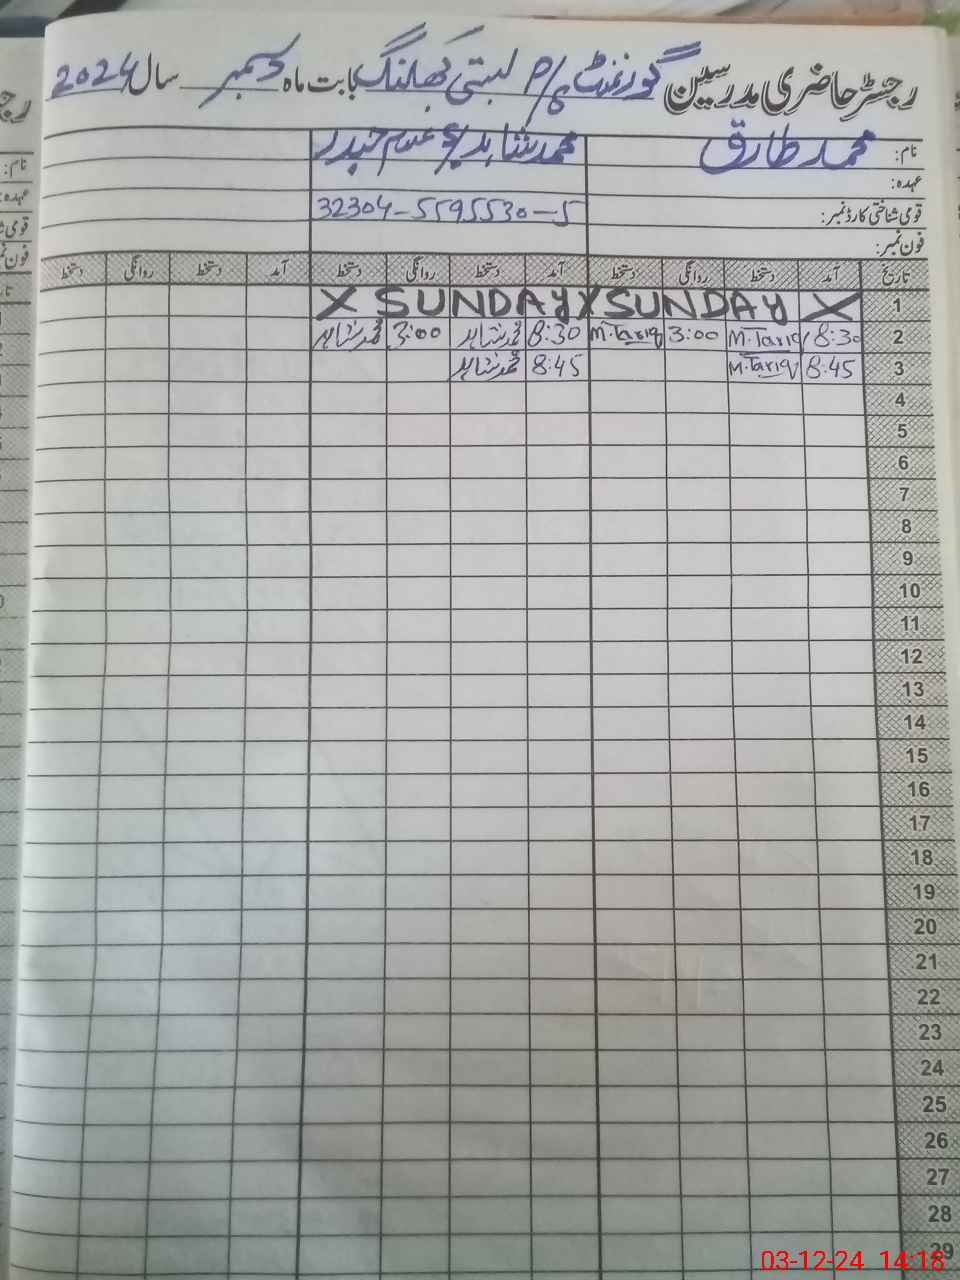 رجسٹر حاضری مدرسین گورنمنٹ P/S بستی کھلنگ بابت ماہ دسمبر سال 2024
نام: محمد طارق محمد شاہد غلام حیدر
عہدہ:
قومی شناختی کارڈ نمبر: 32304-5595530-5
فون نمبر:
تاریخ آمد دستخط روانگی دستخط آمد دستخط روانگی دستخط آمد دستخط روانگی دستخط
1 X SUNDAY X SUNDAY X
2 8:30 M.Tariq 3:00 M.Tariq 8:30 محمد شاہد 3:00 محمد شاہد
3 8:45 M.Tariq 8:45 محمد شاہد
4
5
6
7
8
9
10
11
12
13
14
15
16
17
18
19
20
21
22
23
24
25
26
27
28
29
03-12-24 14:18